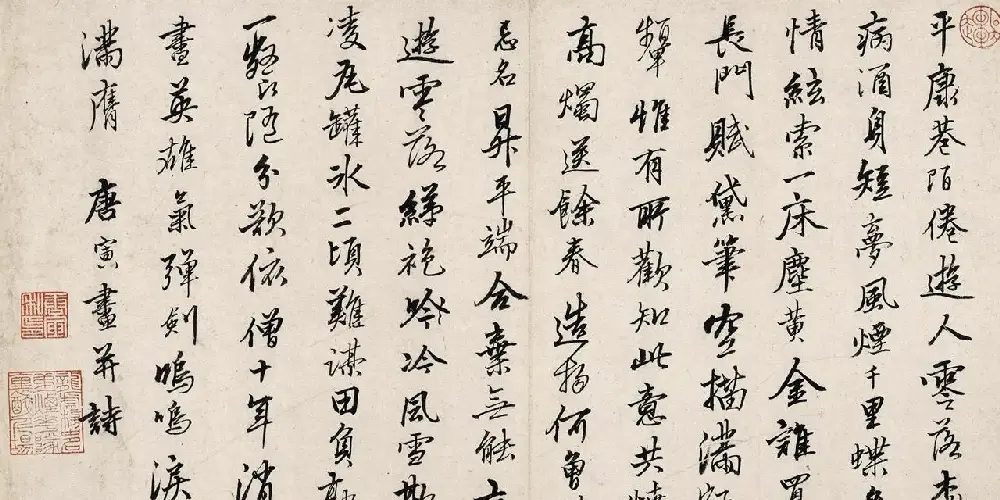 平康巷陌倦遊人零落
病酒身短夢風煙千里蝶
情絃索一床塵黄金誰買
長門賦黛筆空描滿
顰惟有所歡知此意共燒
高燭送餘春 造物何曾
忌名昇平端合棄無能
遊零落綈袍吟冷風雪
凌瓦罐冰二頃難謀田負郭
一餐隨分欲依僧十年消
畫英雄氣彈劍嗚嗚淚
滿膺 唐寅畫并詩